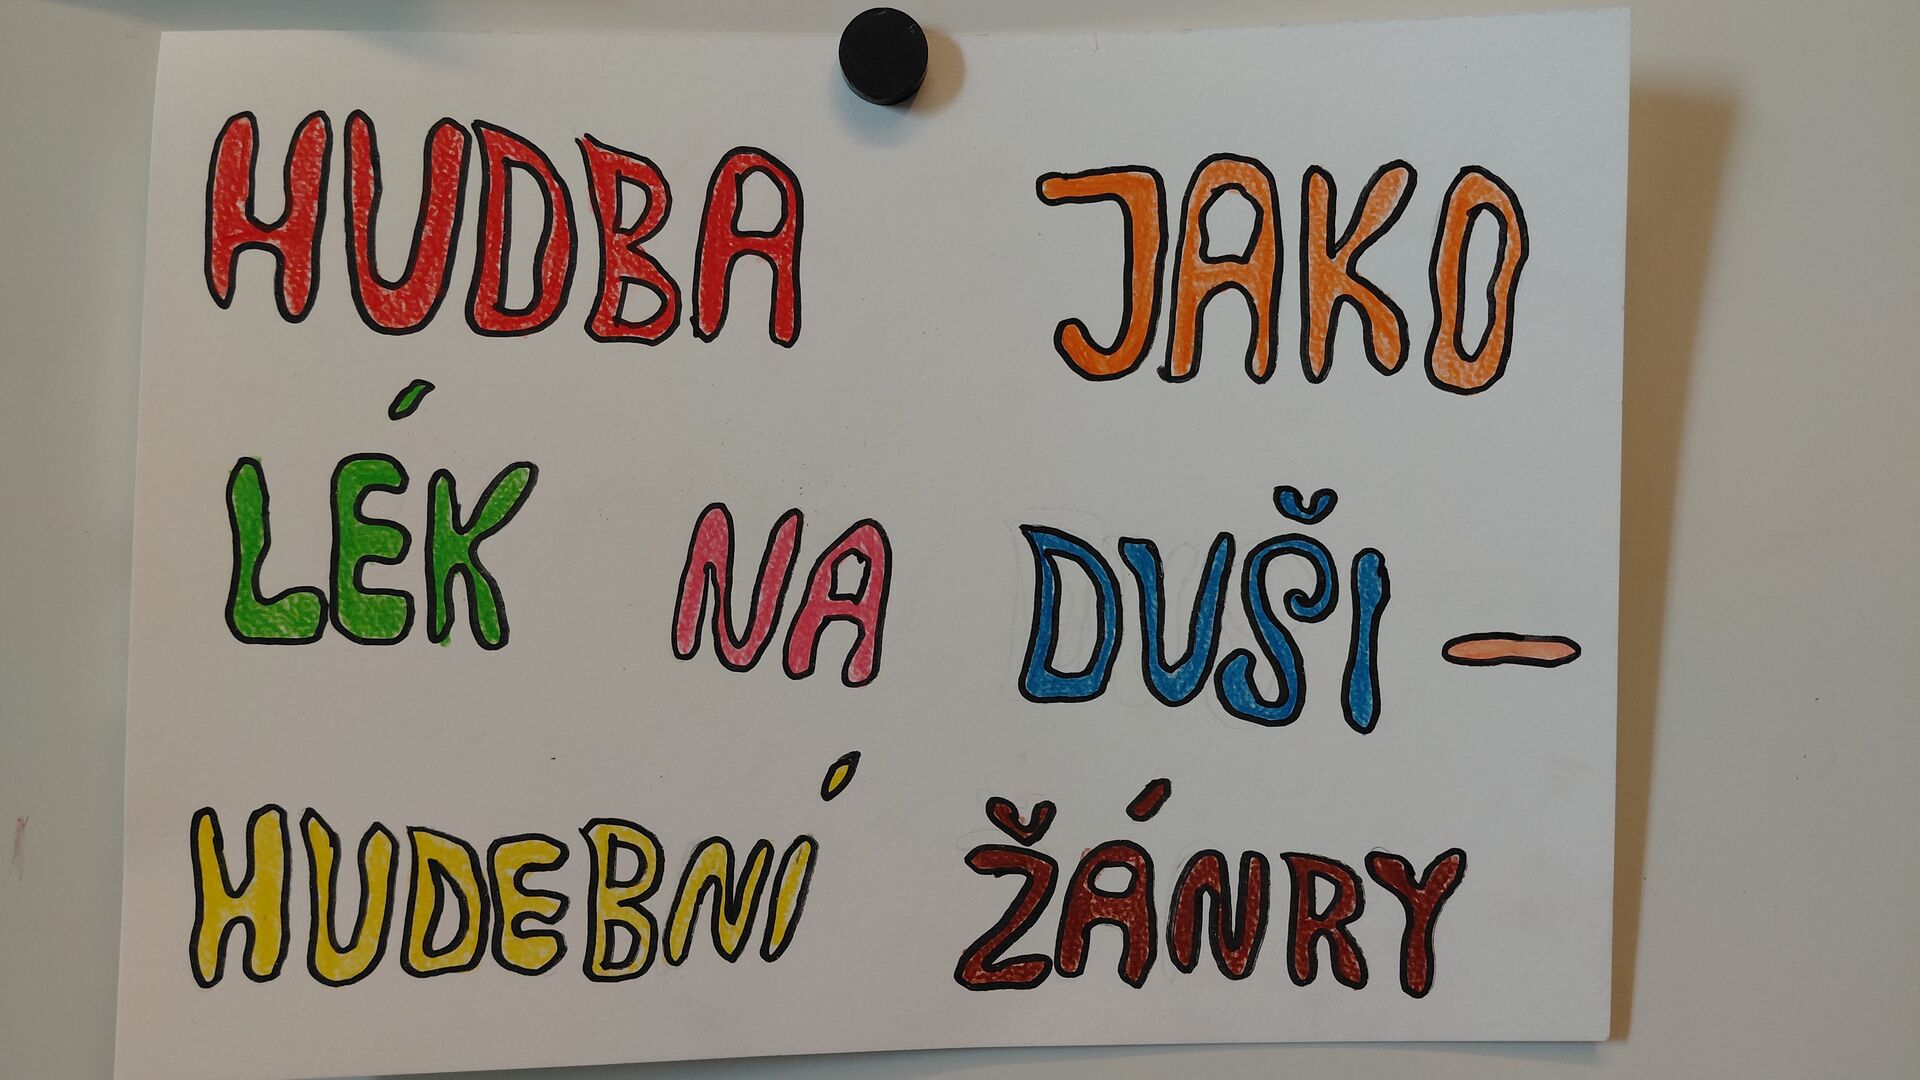 HUDBA JAKO
LÉK NA DUŠI -
HUDEBNÍ ŽÁNRY